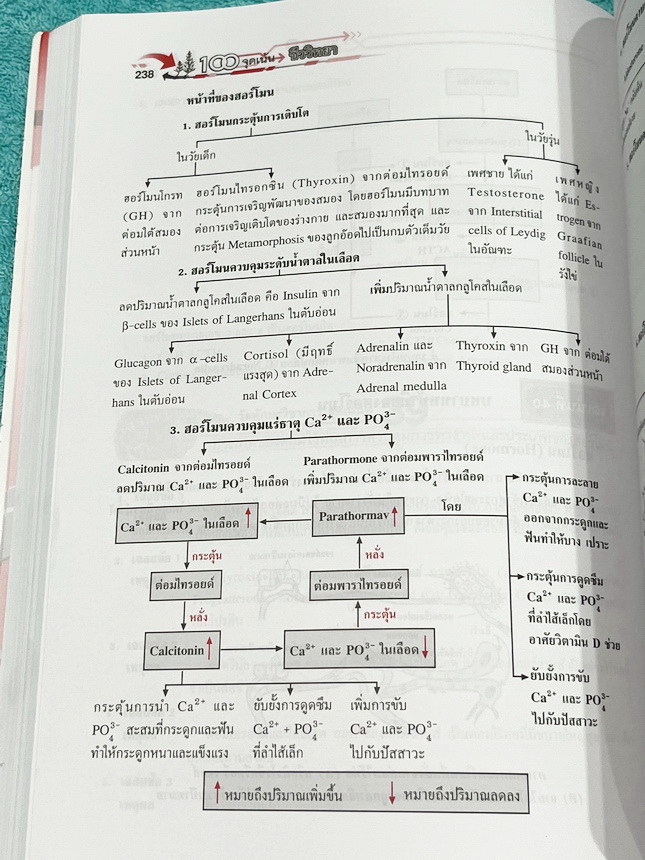 238
100 จุดเน้น ชีววิทยา
หน้าที่ของฮอร์โมน
1. ฮอร์โมนกระตุ้นการเติบโต
ในวัยเด็ก
ในวัยรุ่น
ฮอร์โมนโกรท
(GH) จาก
ต่อมใต้สมอง
ส่วนหน้า
ฮอร์โมนไทรอกซิน (Thyroxin) จากต่อมไทรอยด์
กระตุ้นการเจริญพัฒนาของสมอง โดยฮอร์โมนมีบทบาท
ต่อการเจริญเติบโตของร่างกาย และสมองมากที่สุด และ
กระตุ้น Metamorphosis ของลูกอ๊อดไปเป็นกบตัวเต็มวัย
เพศชาย ได้แก่
Testosterone
จาก Interstitial
cells of Leydig
ในอัณฑะ
เพศหญิง
ได้แก่ Es-
trogen จาก
Graafian
follicle ใน
รังไข่
2. ฮอร์โมนควบคุมระดับน้ำตาลในเลือด
ลดปริมาณน้ำตาลกลูโคสในเลือด คือ Insulin จาก
β-cells ของ Islets of Langerhans ในตับอ่อน
เพิ่มปริมาณน้ำตาลกลูโคสในเลือด
Glucagon จาก α-cells
ของ Islets of Langer-
hans ในตับอ่อน
Cortisol (มีฤทธิ์
แรงสุด) จาก Adre-
nal Cortex
Adrenalin และ
Noradrenalin จาก
Adrenal medulla
Thyroxin จาก
Thyroid gland
GH จาก ต่อมใต้
สมองส่วนหน้า
3. ฮอร์โมนควบคุมแร่ธาตุ Ca²⁺ และ PO₄³⁻
Calcitonin จากต่อมไทรอยด์
ลดปริมาณ Ca²⁺ และ PO₄³⁻ ในเลือด
Parathormone จากต่อมพาราไทรอยด์
เพิ่มปริมาณ Ca²⁺ และ PO₄³⁻ ในเลือด
โดย
Ca²⁺ และ PO₄³⁻ ในเลือด ↑
Parathormav ↑
กระตุ้น
หลั่ง
ต่อมไทรอยด์
ต่อมพาราไทรอยด์
หลั่ง
กระตุ้น
Calcitonin ↑
Ca²⁺ และ PO₄³⁻ ในเลือด ↓
กระตุ้นการละลาย
Ca²⁺ และ PO₄³⁻
ออกจากกระดูกและ
ฟันทำให้บาง เปราะ
กระตุ้นการดูดซึม
Ca²⁺ และ PO₄³⁻
ที่ลำไส้เล็กโดย
อาศัยวิตามิน D ช่วย
ยับยั้งการขับ
Ca²⁺ และ PO₄³⁻
ไปกับปัสสาวะ
กระตุ้นการนำ Ca²⁺ และ
PO₄³⁻ สะสมที่กระดูกและฟัน
ทำให้กระดูกหนาและแข็งแรง
ยับยั้งการดูดซึม
Ca²⁺ + PO₄³⁻
ที่ลำไส้เล็ก
เพิ่มการขับ
Ca²⁺ และ PO₄³⁻
ไปกับปัสสาวะ
↑ หมายถึงปริมาณเพิ่มขึ้น ↓ หมายถึงปริมาณลดลง